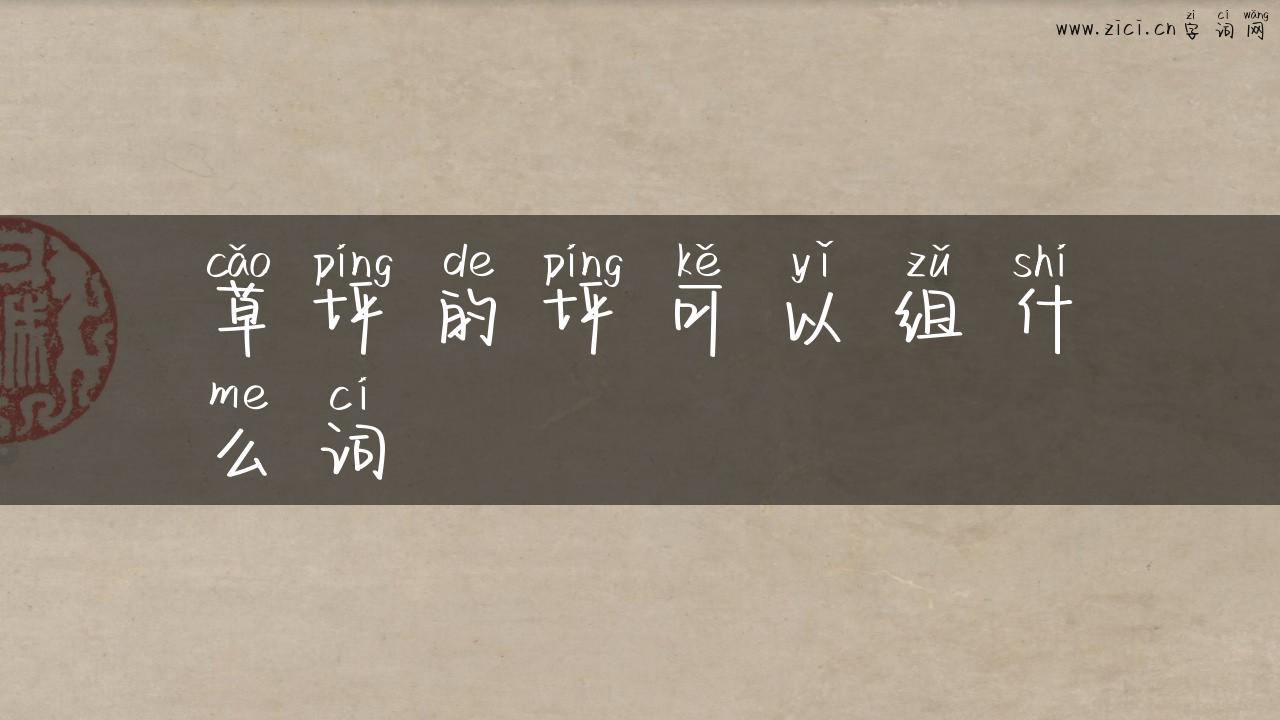 www.zici.cn 字词网
zì cí wǎng
cǎo píng de píng kě yǐ zǔ shí
草坪的坪可以组什
me cí
么词